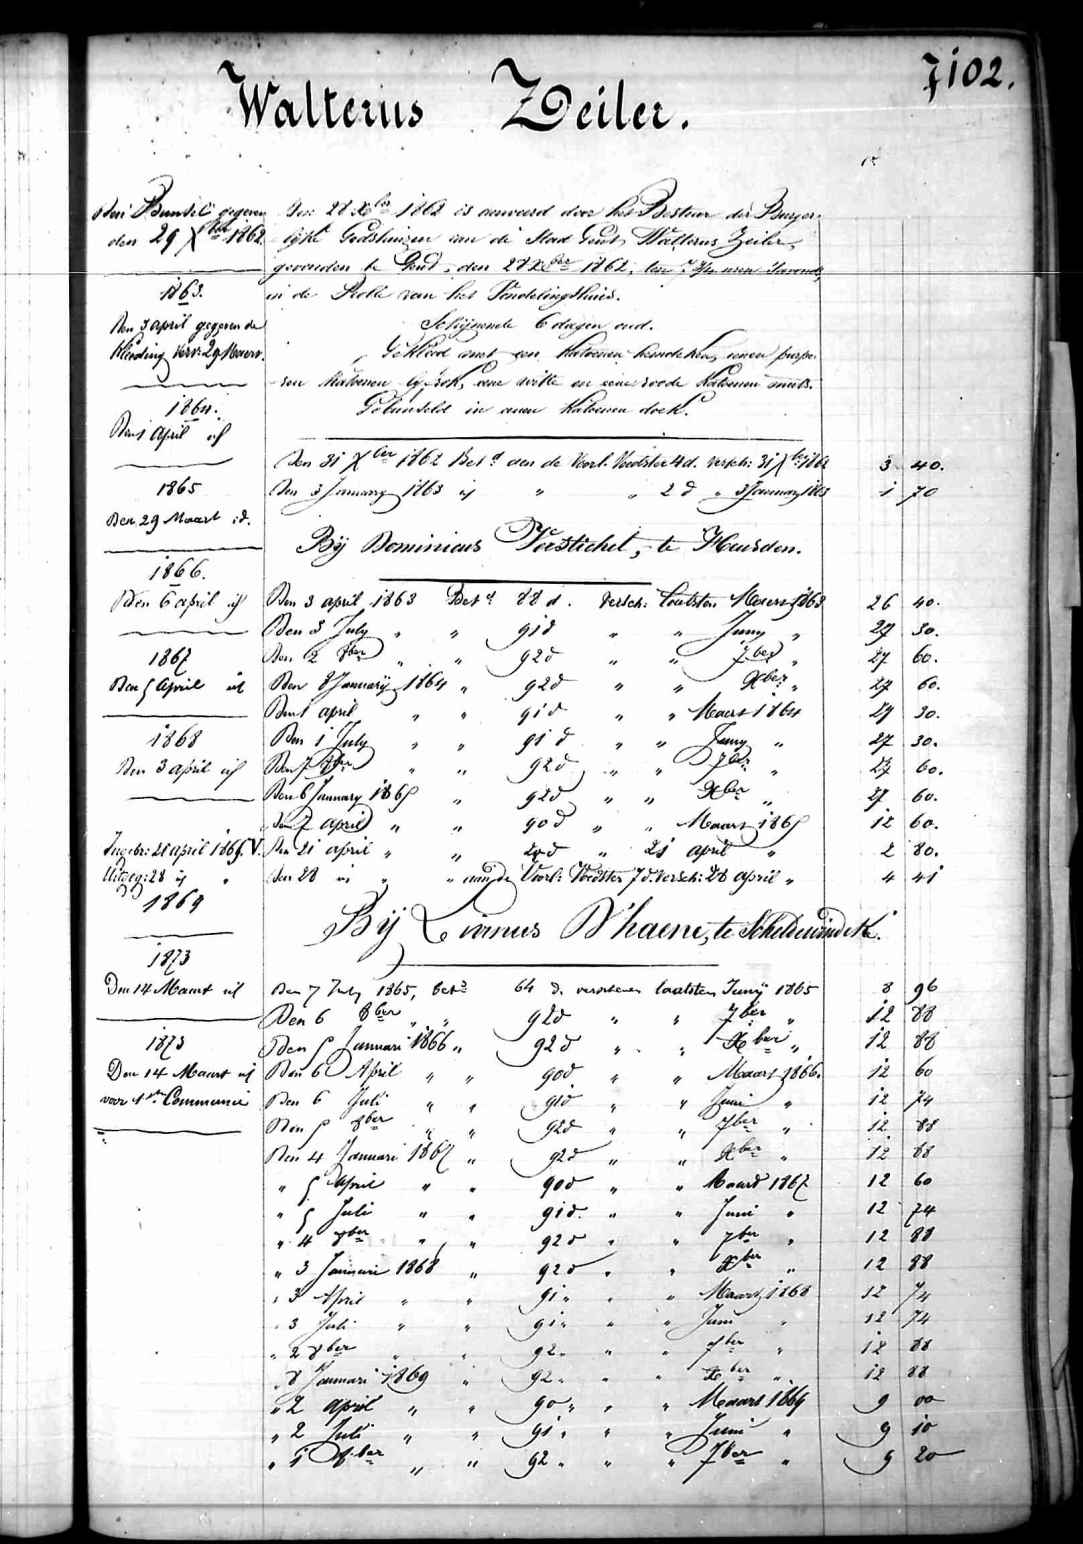 7102.
Walterus Zeiler.
Een Bundel gegeven
den 29 Xber 1862
1863.
Den 3 april gegeven de
kleeding versch: 29 Maert.
1864.
Den 1 April id
1865
Den 29 Maart id.
1866.
Den 6 april id
1867
Den 5 April id
1868
Den 3 april id
Ingebr: 21 april 1865. V.
Uitbeg: 28 id "
1869
1873
Den 14 Maart id
1873
Den 14 Maart id
voor 1ste Communie
Den 28 Xber 1862 is aanveerd door het Bestuur der Burger-
lijke Godshuizen van de Stad Gent, Walterus Zeiler,
gevonden te Gend, den 28 Xber 1862, ten uren 's avonds,
in de Rolle van het Vondelingshuis.
Schijnende 6 dagen oud.
Gekleed met een katoenen hemdeken, eenen purpe-
ren katoenen rok, eene witte en eene roode katoenen muts.
Gebundeld in eenen katoenen doek.
Den 31 Xber 1862 Betd aan de Voorl. Voedster 4 d. versch: 31 Xber 1862 3 40.
Den 3 January 1863 id " " 2 d " 3 January 1863 1 70
Bij Dominicus Verstichel, te Heusden.
Den 3 april 1863 Betd 88 d. versch: laatsten Maert 1863 26 40.
Den 3 July " " 91 d " " Juny " 27 30.
Den 2 8ber " " 92 d " " 7ber " 27 60.
Den 8 Januarij 1864 " 92 d " " Xber " 27 60.
Den 1 april " " 91 d " " Maert 1864 27 30.
Den 1 July " " 91 d " " Juny " 27 30.
Den 7 8ber " " 92 d " " 7ber " 27 60.
Den 6 January 1865 " 92 d " " Xber " 27 60.
Den 7 april " " 90 d " " Maart 1865 12 60.
Den 21 april " " 20 d " 21 april " 2 80.
Den 28 id " " aan de Voorl: Voedster 7 d. versch: 28 april " 4 41
Bij Livinus D'haene, te Scheldewindeke.
Den 7 July 1865, betd 64 d. verschenen laatsten Junij 1865 8 96
Den 6 8ber " " 92 d " " 7ber " 12 88
Den 5 Januari 1866 " 92 d " " Xber " 12 88
Den 6 April " " 90 d " " Maart 1866. 12 60
Den 6 Juli " " 91 d " " Juni " 12 74
Den 5 8ber " " 92 d " " 7ber " 12 88
Den 4 Januari 1867 " 92 d " " Xber " 12 88
" 5 April " " 90 d " " Maart 1867 12 60
" 5 Juli " " 91 d. " " Juni " 12 74
" 4 8ber " " 92 d " " 7ber " 12 88
" 3 Januari 1868 " 92 d " " Xber " 12 88
" 3 April " " 91 " " " Maart 1868 12 74
" 3 Juli " " 91 " " " Juni " 12 74
" 2 8ber " " 92 " " " 7ber " 12 88
" 8 Januari 1869 " 92 " " " Xber " 12 88
" 2 april " " 90 " " " Maart 1869 9 00
" 2 Juli " " 91 " " " Juni " 9 10
" 1 8ber " " 92 " " " 7ber " 9 20